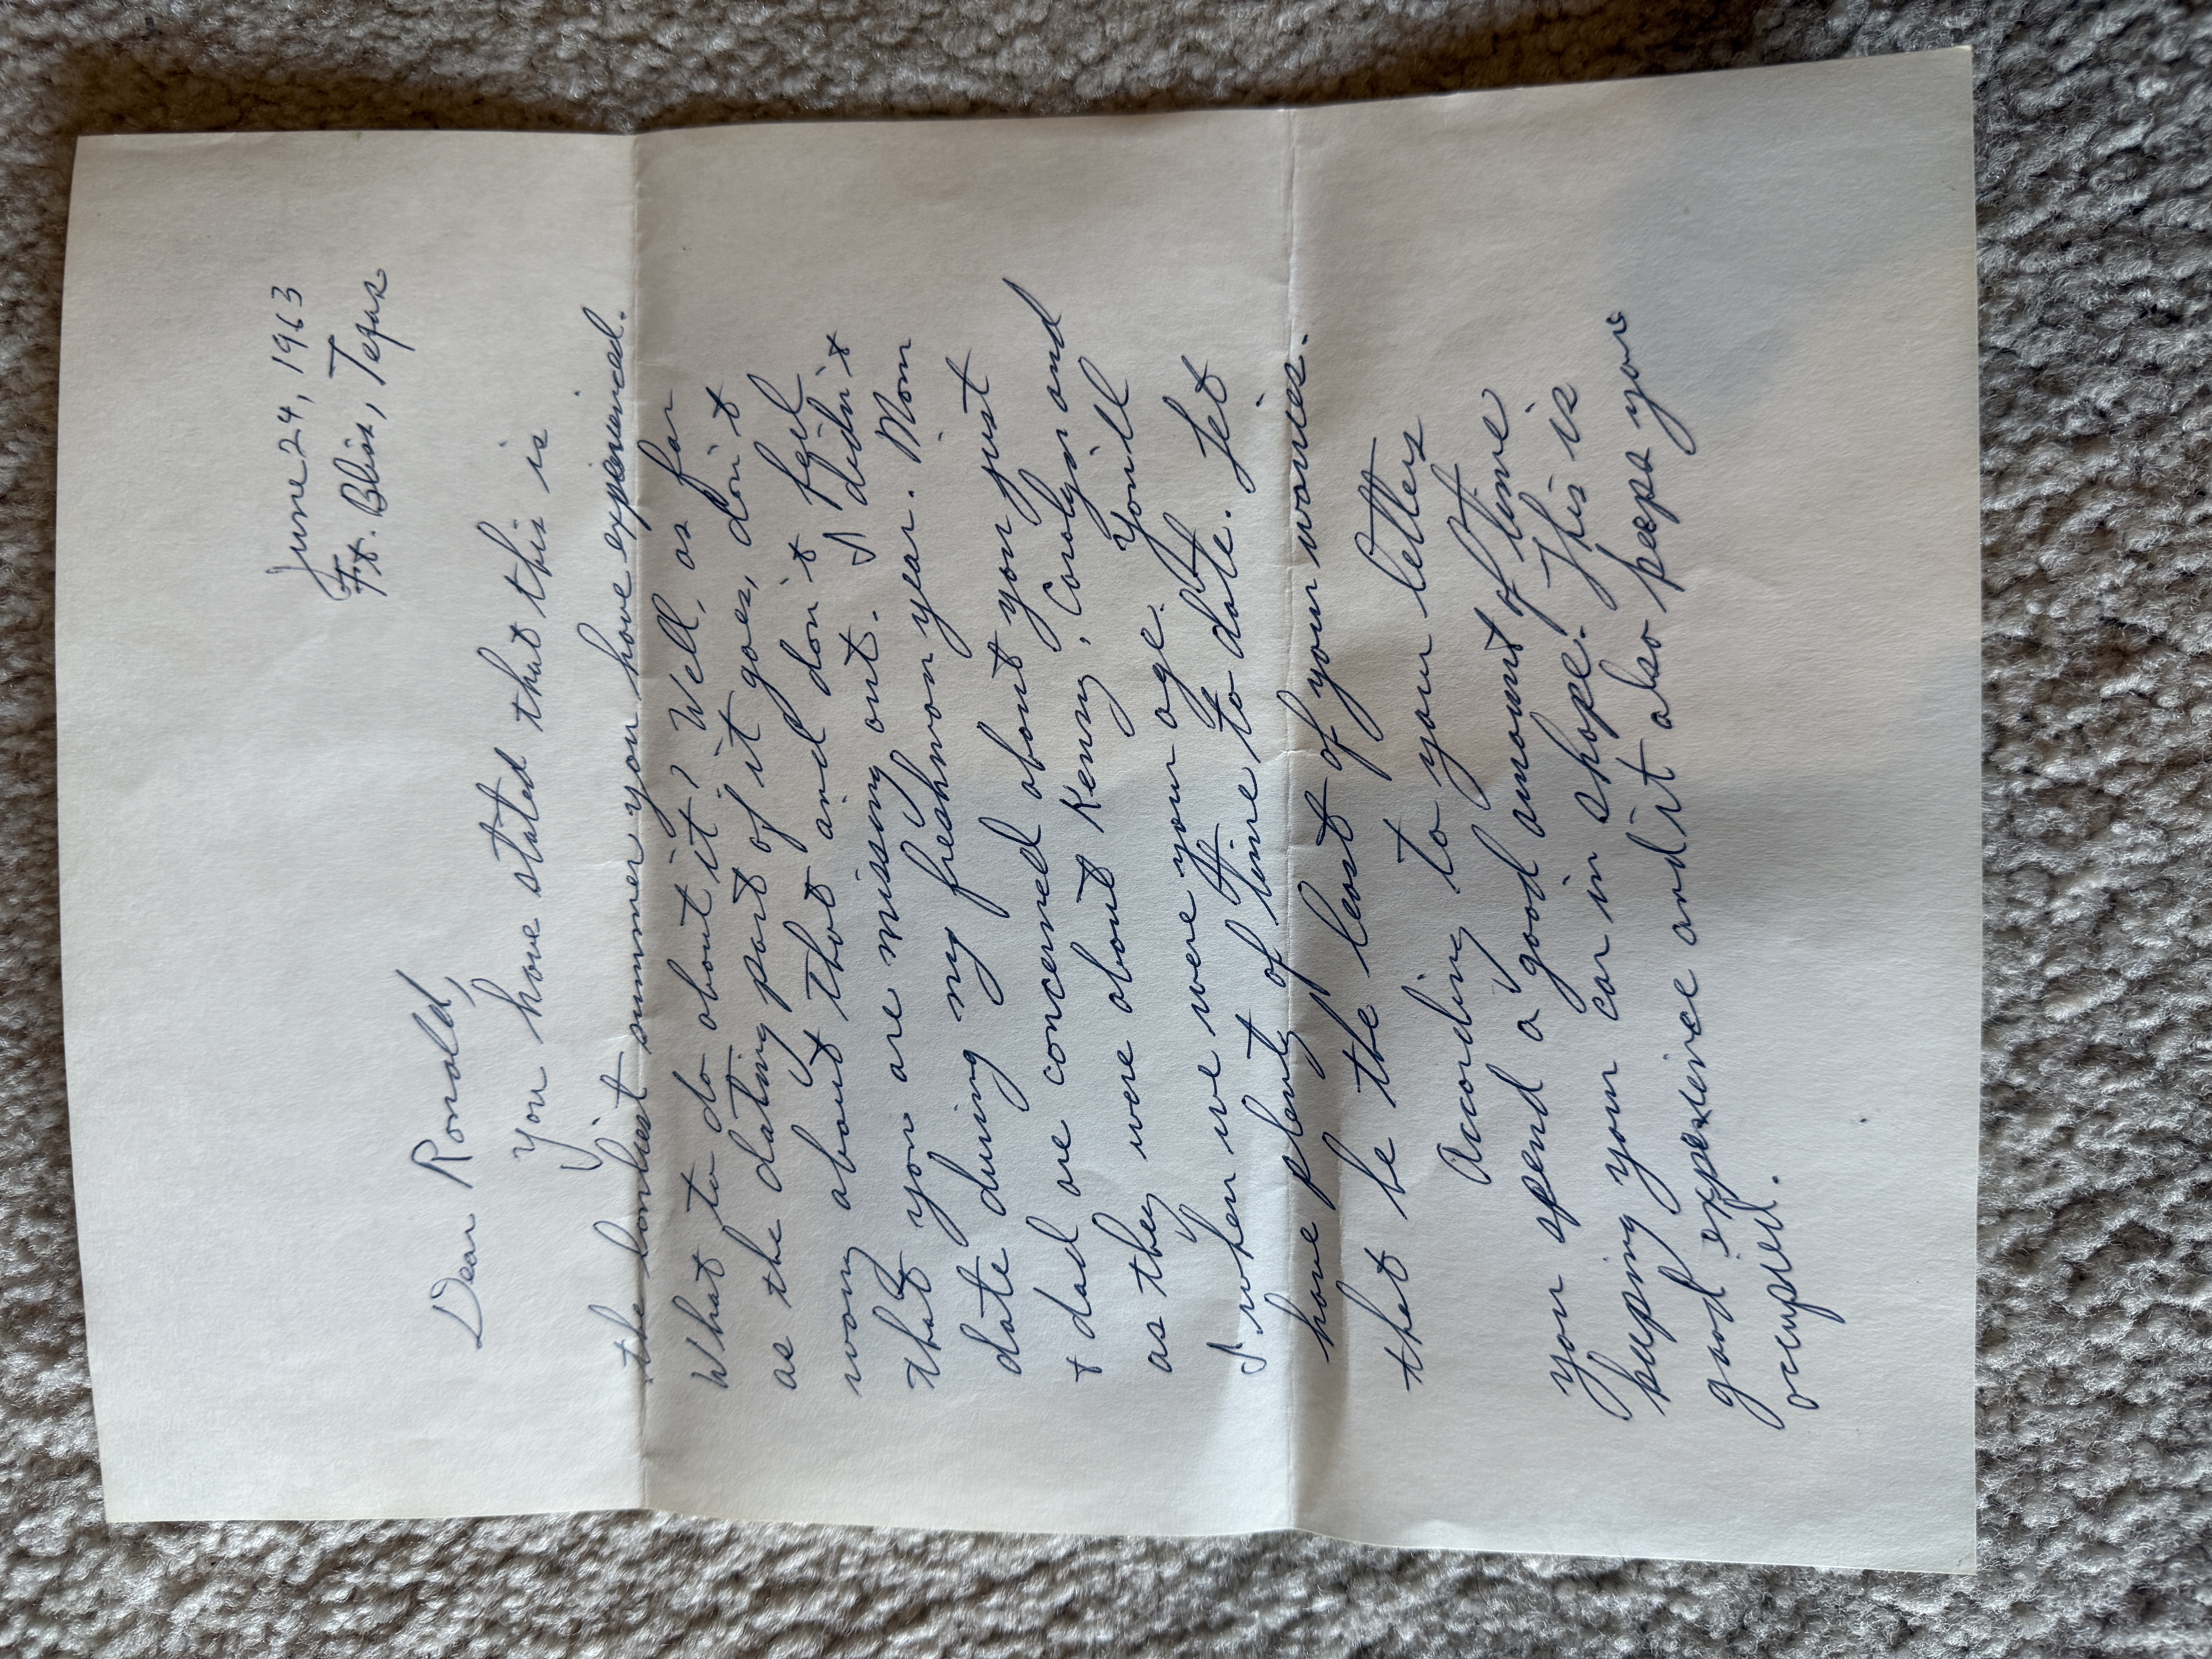 June 24, 1963
Ft. Bliss, Texas
Dear Ronald,
You have stated that this is
the lonliest summer you have experienced.
What to do about it? Well, as far
as the dating part of it goes, don't
worry about that and don't feel
that you are missing out. I didn't
date during my freshmon year. Mom
+ dad are concerned about you just
as they were about Kenny, Carolyn and
I when we were your age. You'll
have plenty of time to date. Let
that be the least of your worries.
According to your letters
you spend a good amount of time
keeping your car in shape. This is
good experience and it also keeps you
occupied.